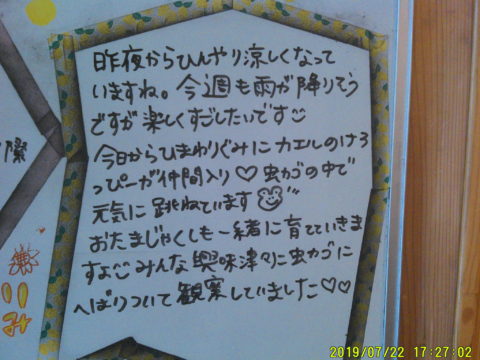 昨夜からひんやり涼しくなって
いますね。今週も雨が降りそう
ですが楽しくすごしたいです
今日からひまわりぐみにカエルのけろ
っぴーが仲間入り♡虫カゴの中で
元気に跳ねています
おたまじゃくしも一緒に育てていきま
すよ みんな興味津々に虫カゴに
へばりついて観察していました♡♡
際
り
み
2019/07/22 17:27:02